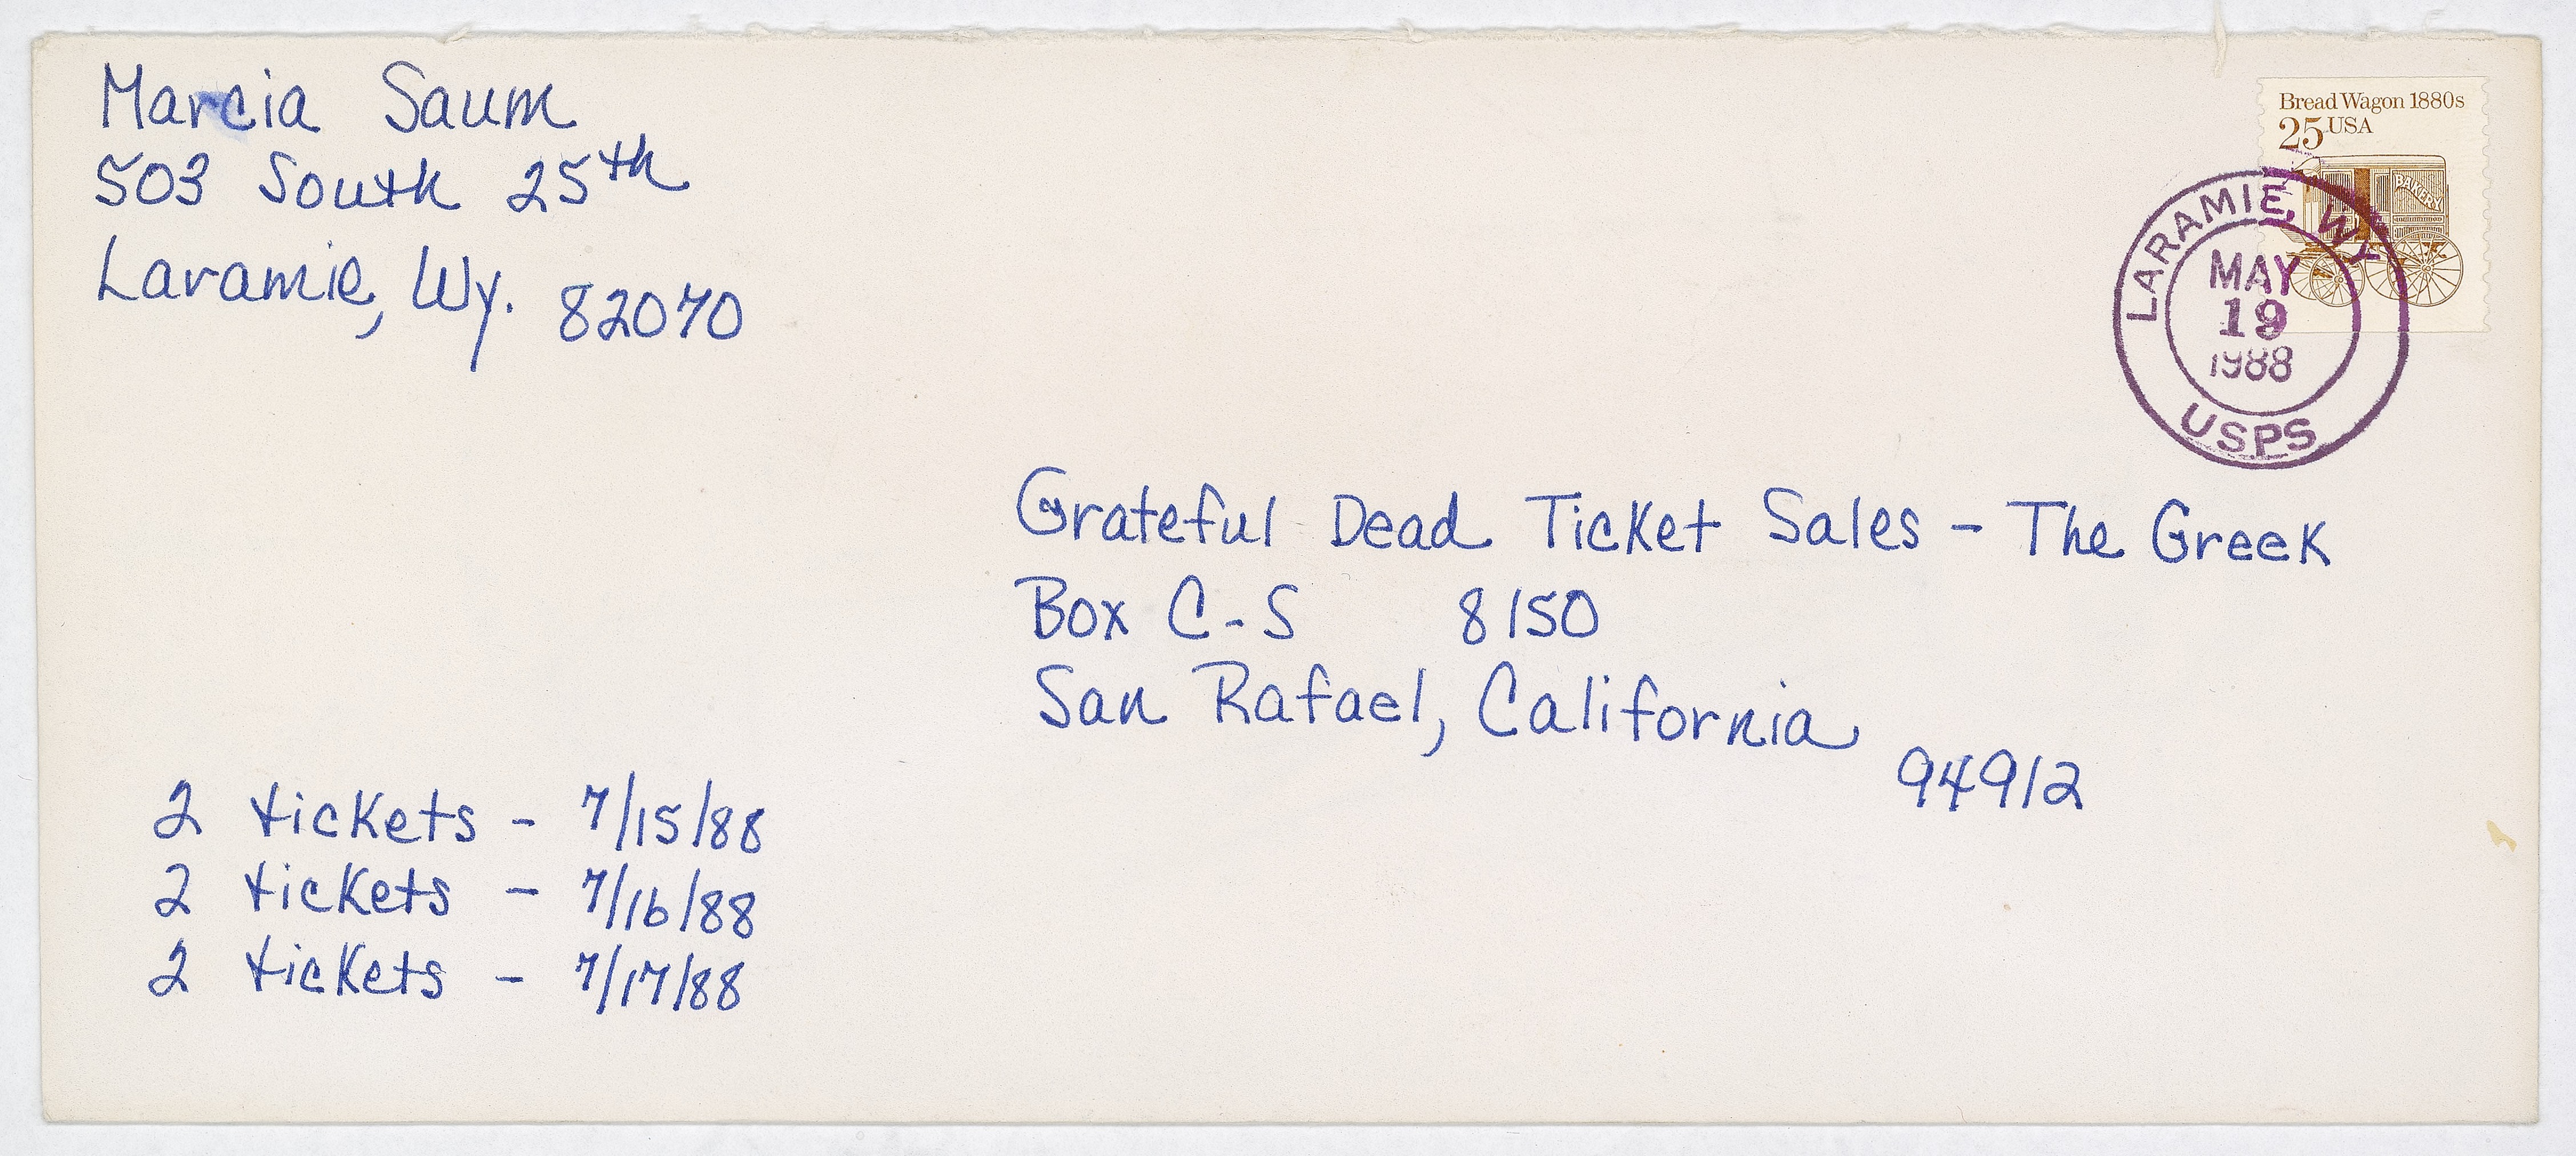 Marcia Saum
503 South 25th
Laramie, Wy. 82070
Bread Wagon 1880s
25 USA
BAKERY
LARAMIE, WY
MAY
19
1988
USPS
Grateful Dead Ticket Sales - The Greek
Box C-S 8150
San Rafael, California
94912
2 tickets - 7/15/88
2 tickets - 7/16/88
2 tickets - 7/17/88